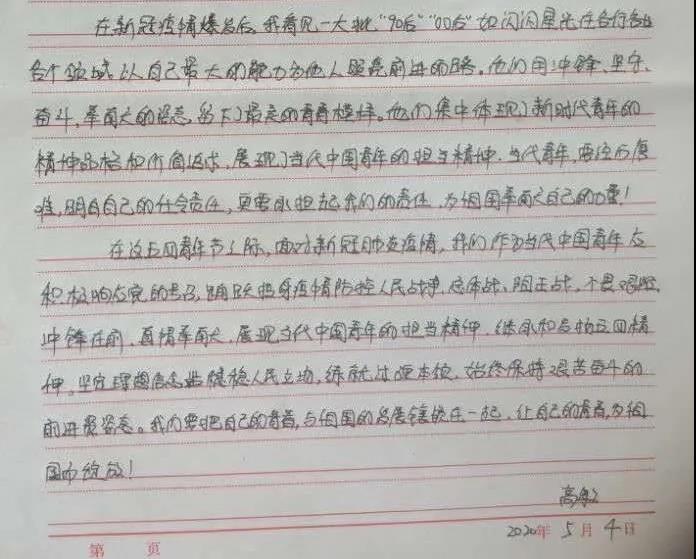 在新冠疫情爆发后，我看见一大批“90后”“00后”如闪闪星光在各行各业
各个领域以自己最大的能力为他人照亮前进的路。他们用冲锋、坚守、
奋斗、奉献的姿态，留下了最美的青春模样。他们集中体现了新时代青年的
精神品格和价值追求，展现了当代中国青年的担当精神。当代青年，要
明白自己的社会责任，更要承担起我们的责任，为祖国奉献自己的力量！
在这五四青年节之际，面对新冠肺炎疫情，我们作为当代中国青年应
积极响应党的号召，踊跃投身疫情防控人民战争、总体战、阻击战，不畏艰险、
冲锋在前、真情奉献，展现当代中国青年的担当精神，继承和发扬五四精
神，坚定理想信念，站稳人民立场，练就过硬本领，始终保持艰苦奋斗的
前进姿态。我们要把自己的青春，与祖国的发展镶嵌在一起，让自己的青春，为祖
国而绽放！
2020年 5 月 4 日
第 页